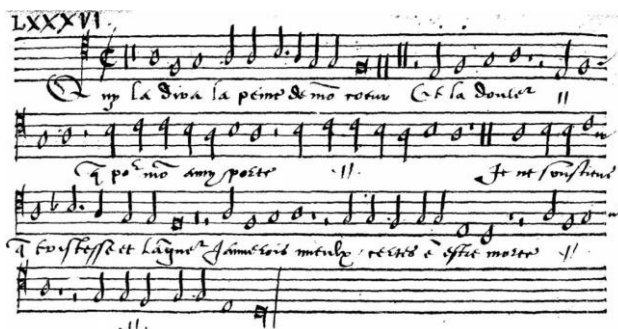 LXXXVI
Quy la dira la peine de mõ cœur Et la douler ||
q̃ por mõ amy porte ·||· Je ne soustiens
q̃ tristesse et langr Jaimerois mieulx certes ẽ estre morte ·||
·||·